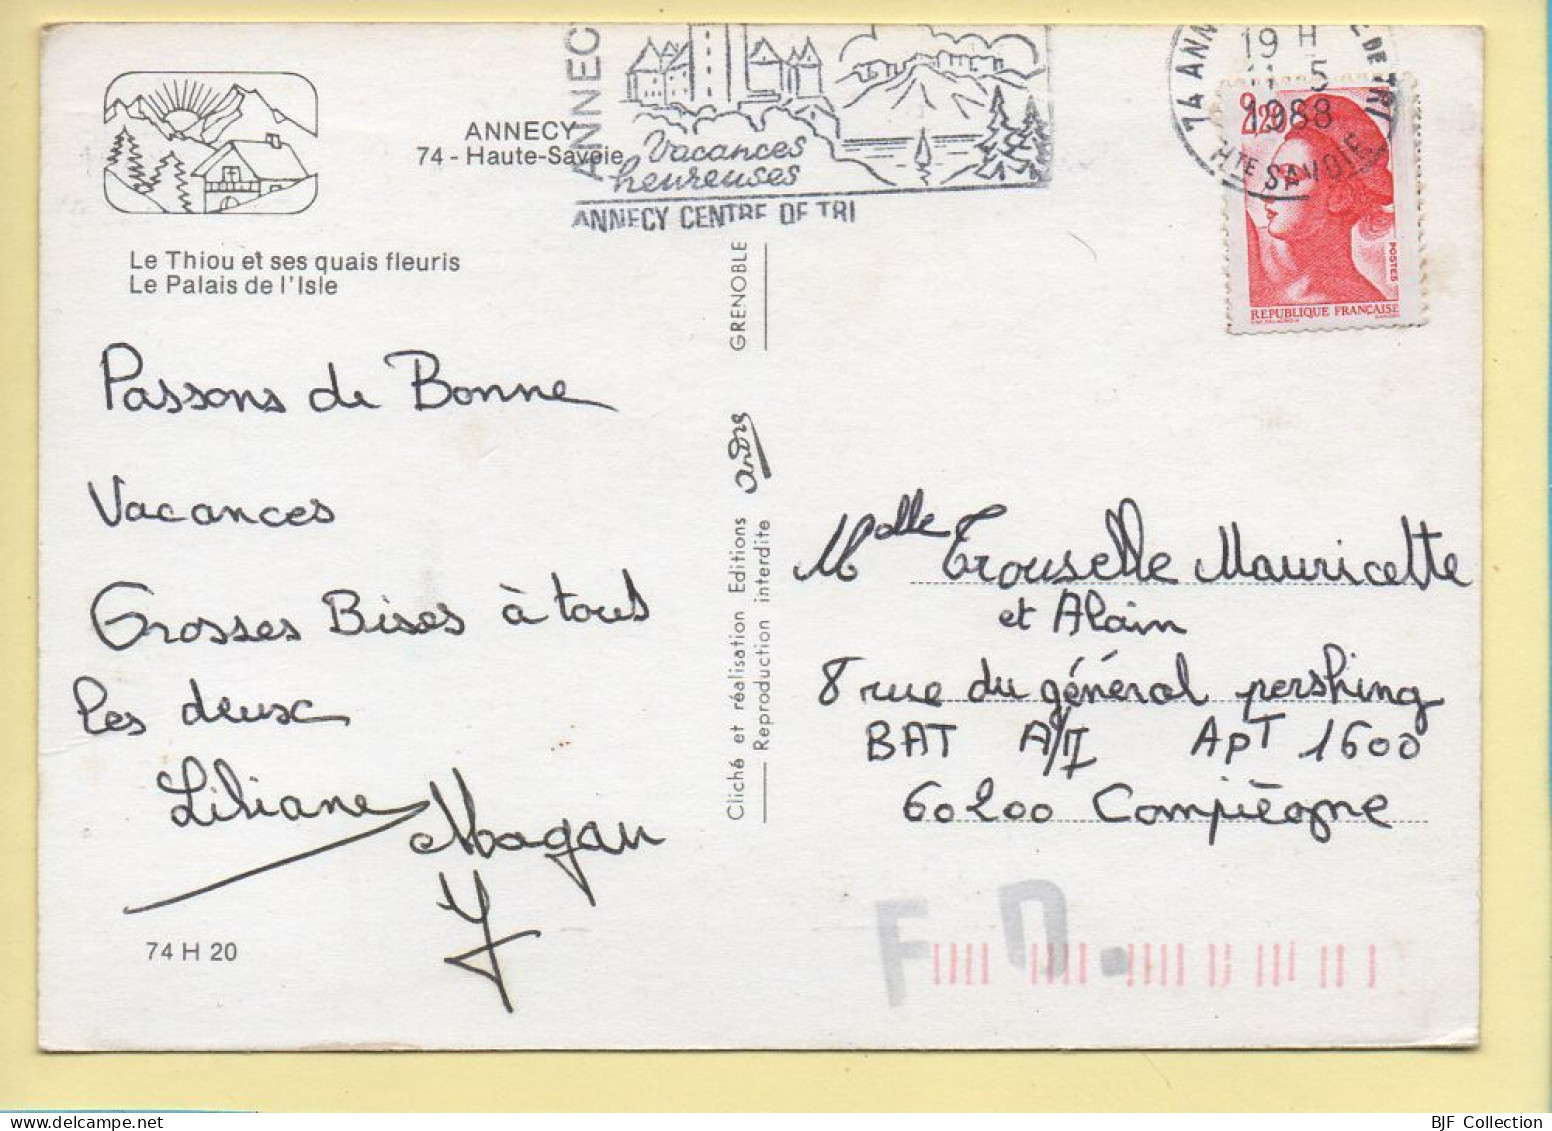 ANNECY
74 - Haute-Savoie
ANNECY
Vacances
heureuses
ANNECY CENTRE DE TRI
74 ANN
DE TRI
19 H
5
1988
HTE SAVOIE
2,20
POSTES
REPUBLIQUE FRANÇAISE
Le Thiou et ses quais fleuris
Le Palais de l'Isle
Passons de Bonne
Vacances
Grosses Bises à tous
les deux
Liliane Magan
74 H 20
Cliché et réalisation Editions andre GRENOBLE
Reproduction interdite
Melle Trouselle Mauricette
et Alain
8 rue du général pershing
BAT A/II APT 1600
60200 Compiègne
F D.
BJF Collection